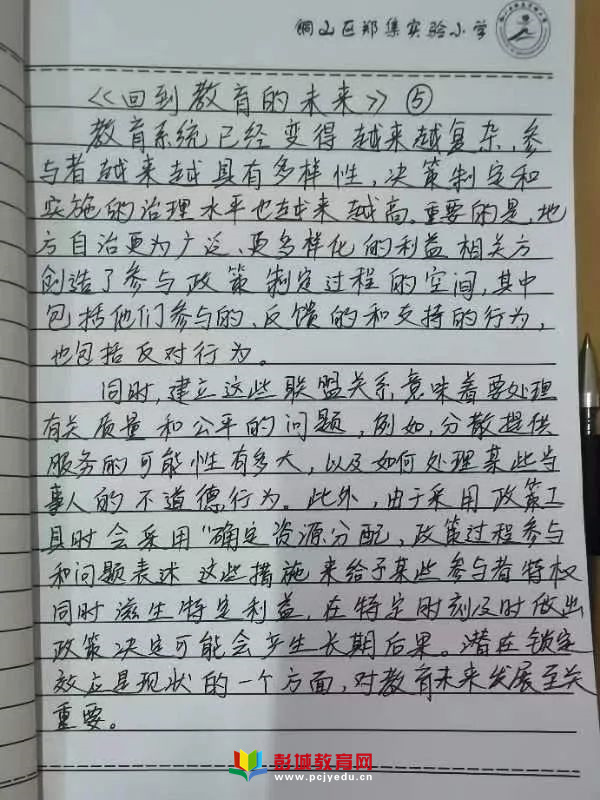 铜山区郑集实验小学
《回到教育的未来》⑤
教育系统已经变得越来越复杂,参
与者越来越具有多样性,决策制定和
实施的治理水平也越来越高,重要的是,地
方自治更为广泛、更多样化的利益相关方
创造了参与政策制定过程的空间,其中
包括他们参与的、反馈的和支持的行为,
也包括反对行为。
同时,建立这些联盟关系意味着要处理
有关质量和公平的问题,例如,分散提供
服务的可能性有多大,以及如何处理某些当
事人的不道德行为。此外,由于采用政策工
具时会采用“确定资源分配,政策过程参与
和问题表述这些措施来给予某些参与者特权
同时滋生特定利益,在特定时刻及时做出
政策决定可能会产生长期后果。潜在锁定
效应是现状的一个方面,对教育未来发展至关
重要。
彭城教育网
www.pcjyedu.cn